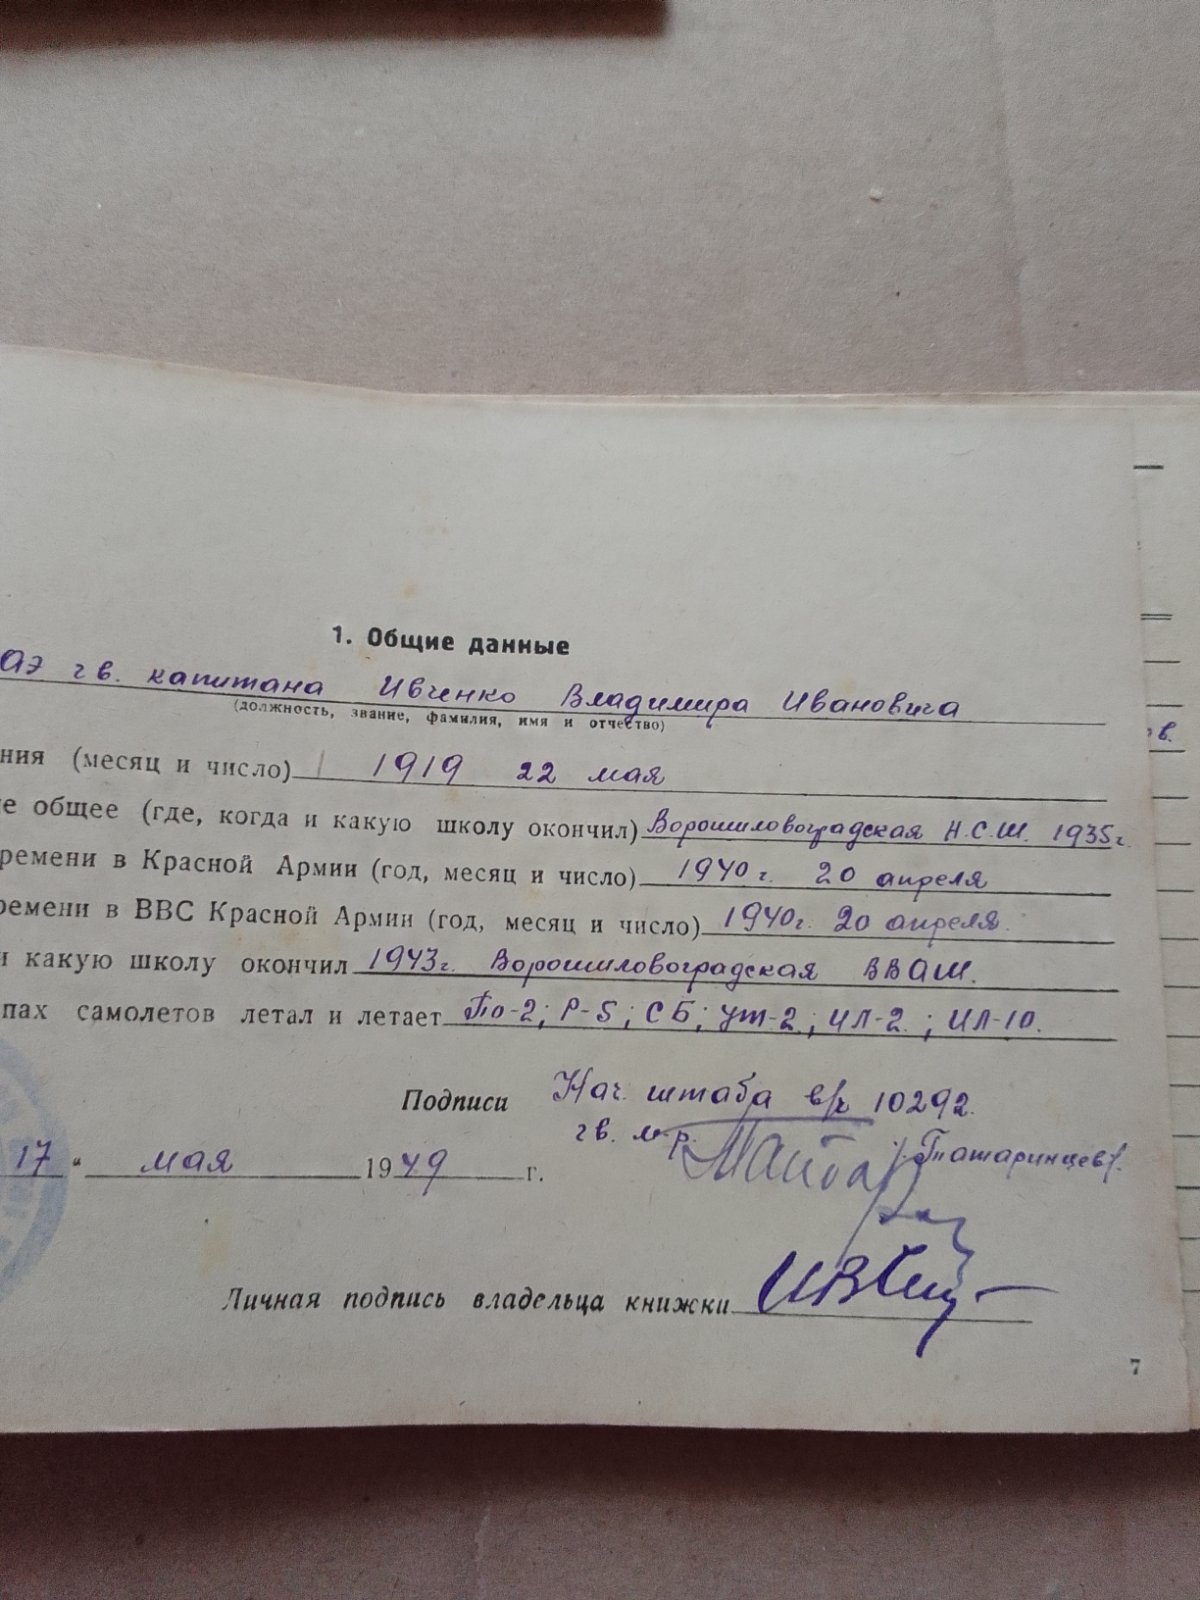 1. Общие данные
АЭ гв. капитана Ивченко Владимира Ивановича
(должность, звание, фамилия, имя и отчество)
ния (месяц и число) 1919 22 мая
е общее (где, когда и какую школу окончил) Ворошиловоградская Н.С.Ш. 1935г.
ремени в Красной Армии (год, месяц и число) 1940г. 20 апреля
ремени в ВВС Красной Армии (год, месяц и число) 1940г. 20 апреля.
и какую школу окончил 1943г. Ворошиловоградская ВВАШ.
пах самолетов летал и летает По-2; Р-5; СБ; УТ-2; ИЛ-2; ИЛ-10.
Подписи Нач. штаба в/ч 10292.
гв. м-р. /Татаринцев/.
17 " мая 1949 г.
Личная подпись владельца книжки
7
ов.